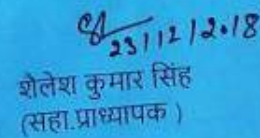 23/12/2018
शैलेश कुमार सिंह
(सहा.प्राध्यापक )